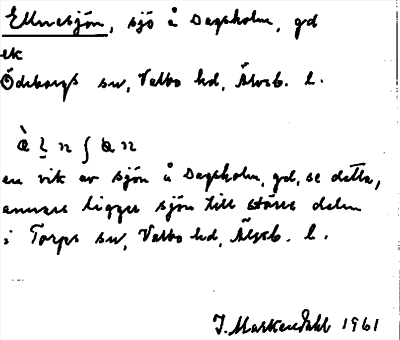 Ellnesjön, sjö å Dagsholm, gd
ek
Ödeborgs sn, Valbo hd, Älvsb. l.
en vik av sjön å Dagsholm, gd, se detta,
annars ligger sjön till större delen
i Torps sn, Valbo hd, Älvsb. l.
J. Markendahl 1961